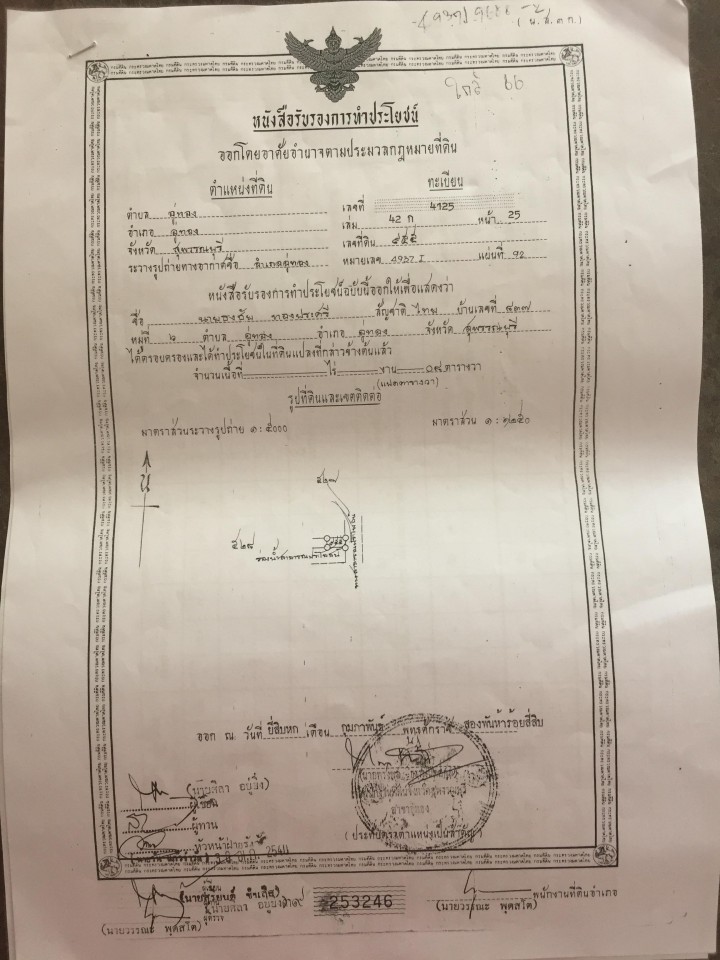 (น.ส.๓ก.)
ใกล้ 66
หนังสือรับรองการทำประโยชน์
ออกโดยอาศัยอำนาจตามประมวลกฎหมายที่ดิน
ตำแหน่งที่ดิน
ทะเบียน
ตำบล อู่ทอง
เลขที่ 4125
อำเภอ อู่ทอง
เล่ม 42 ก หน้า 25
จังหวัด สุพรรณบุรี
เลขที่ดิน ๔๕๕
ระวางรูปถ่ายทางอากาศชื่อ อำเภออู่ทอง หมายเลข 4937 I แผ่นที่ ๑๒
หนังสือรับรองการทำประโยชน์ฉบับนี้ออกให้เพื่อแสดงว่า
ชื่อ นายธงชัย ทองประศรี สัญชาติ ไทย บ้านเลขที่ ๔๓๗
หมู่ที่ ๖ ตำบล อู่ทอง อำเภอ อู่ทอง จังหวัด สุพรรณบุรี
ได้ครอบครองและได้ทำประโยชน์ในที่ดินแปลงที่กล่าวข้างต้นแล้ว
จำนวนเนื้อที่ ไร่ งาน ตารางวา
รูปที่ดินและเขตติดต่อ
มาตราส่วนระวางรูปถ่าย ๑ : ๕๐๐๐
มาตราส่วน ๑ :
น
๕๒๗
๕๒๘
ออก ณ วันที่ ยี่สิบหก เดือน กุมภาพันธ์ พุทธศักราช สองพันห้าร้อยสี่สิบ
(นายสิลา อยู่ยิ่ง)
ผู้เขียน
ผู้ทาน
อู่ทอง
(ประทับตราตำแหน่งเป็นสำคัญ)
หัวหน้าฝ่าย
253246
พนักงานที่ดินอำเภอ
(นายวรรณะ พุดสโต)
(นายวรรณะ พุดสโต)